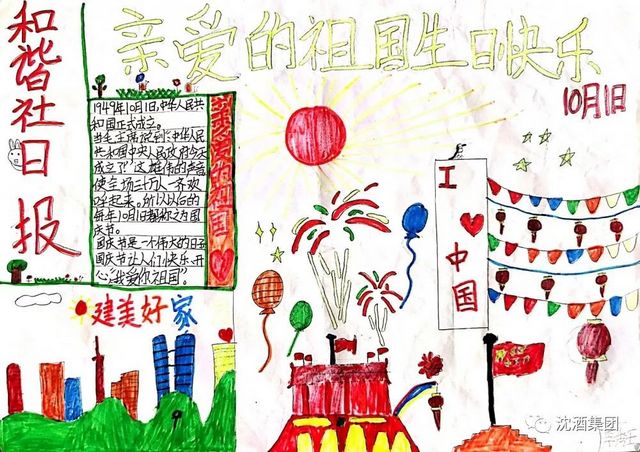 亲爱的祖国生日快乐
10月1日
和谐社日报
1949年10月1日,中华人民共
和国正式成立。
当毛主席说到:中华人民
共和国中央人民政府今天
成立了"这雄伟的声音
使全场三十万人一齐欢
呼起来。所以以后的
每年10月1日都称之为国
庆节。
国庆节是一个伟大的日子
国庆节让人们快乐、开
心,"我爱你祖国"。
的祖国
工
中国
建美好家
沈酒集团